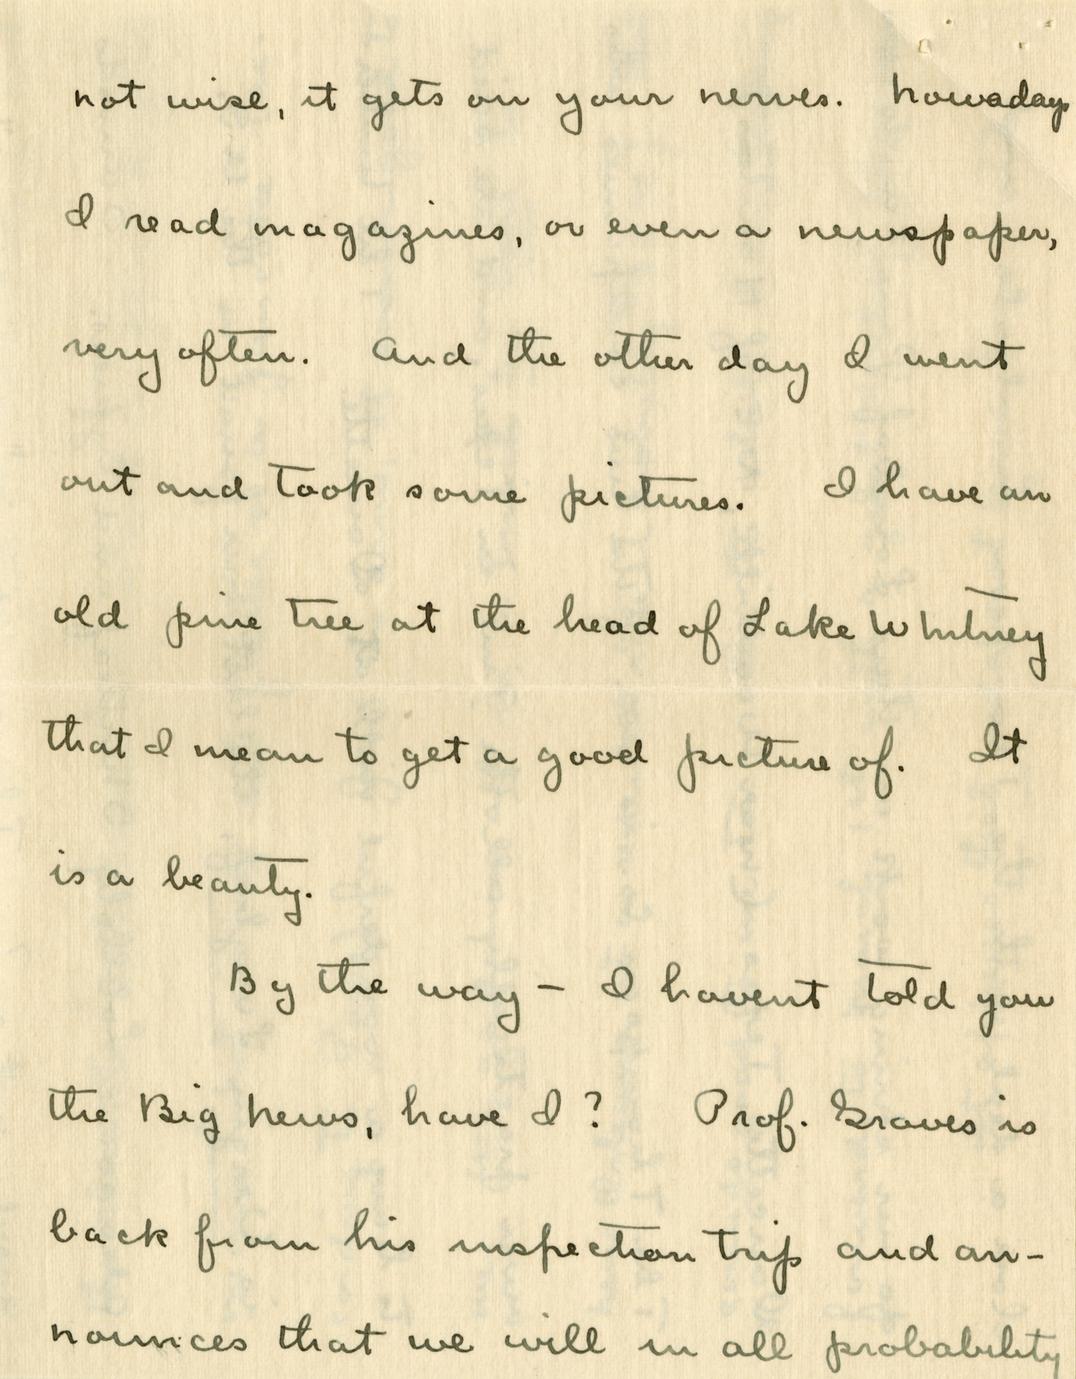 not wise, it gets on your nerves. Nowadays
I read magazines, or even a newspaper,
very often. And the other day I went
out and took some pictures. I have an
old pine tree at the head of Lake Whitney
that I mean to get a good picture of. It
is a beauty.
By the way – I havent told you
the Big News, have I? Prof. Graves is
back from his inspection trip and an-
nounces that we will in all probability